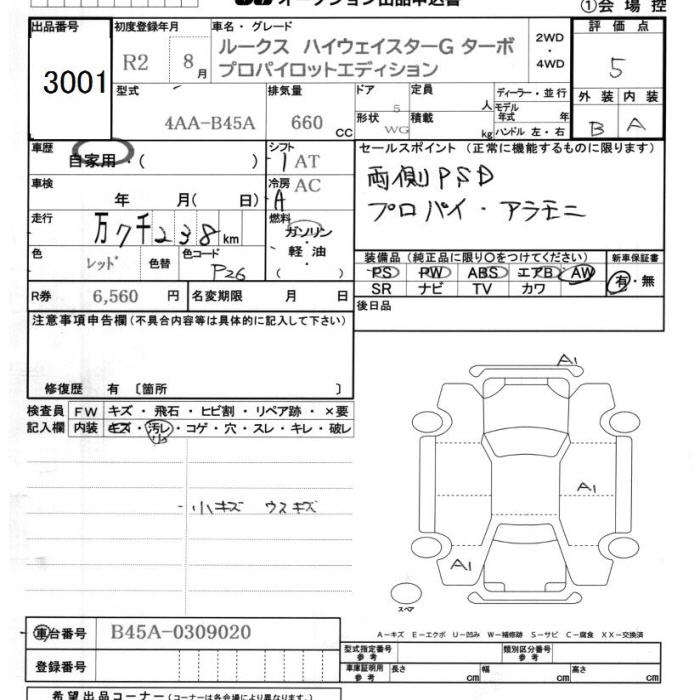 オークション出品申込書
①会場控
出品番号
3001
初度登録年月
R2 8月
車名・グレード
ルークス ハイウェイスターG ターボ
プロパイロットエディション
2WD
・
4WD
評価点
5
外装 内装
B A
型式
4AA-B45A
排気量
660 CC
ドア
5
形状
WG
定員
人
積載
kg
ディーラー・並行
モデル年式 年
ハンドル 左・右
車歴
自家用・( )
シフト
I AT
車検
年 月( 日)
冷房
A AC
走行
万7千238km
燃料
ガソリン
・
軽油
( )
色
レッド
色替
色コード
P26
R券 6,560 円
名変期限 月 日
セールスポイント (正常に機能するものに限ります)
両側PSD
プロパイ・アラモニ
装備品 (純正品に限り○をつけてください)
PS PW ABS エアB AW
SR ナビ TV カワ
新車保証書
有・無
後日品
注意事項申告欄(不具合内容等は具体的に記入して下さい)
修復歴 有 〔箇所 〕
検査員 FW キズ・飛石・ヒビ割・リペア跡・×要
記入欄 内装 キズ・汚レ・コゲ・穴・スレ・キレ・破レ
小
・小キズ ウスキズ
A1
A1
A1
スペア
A－キズ E－エクボ U－凹み W－補修跡 S－サビ C－腐食 XX－交換済
車台番号 B45A-0309020
登録番号
型式指定番号
参考
類別区分番号
参考
車庫証明用
参考
長さ cm 幅 cm 高さ cm
希望出品コーナー(コーナーは各会場により異なります。)